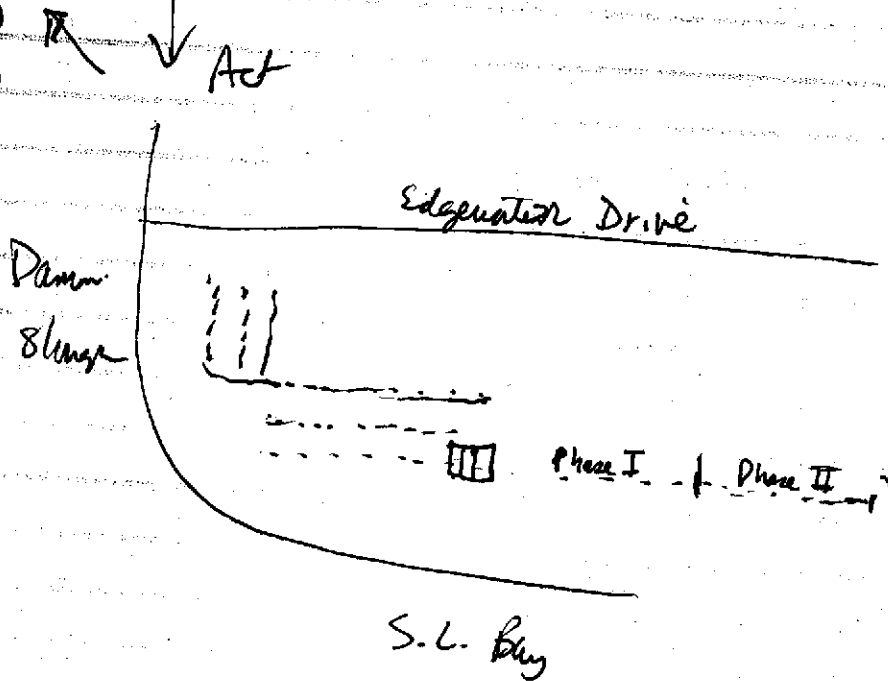 Act
Edgewater Drive
Damon
Slough
Phase I
Phase II
S.L. Bay